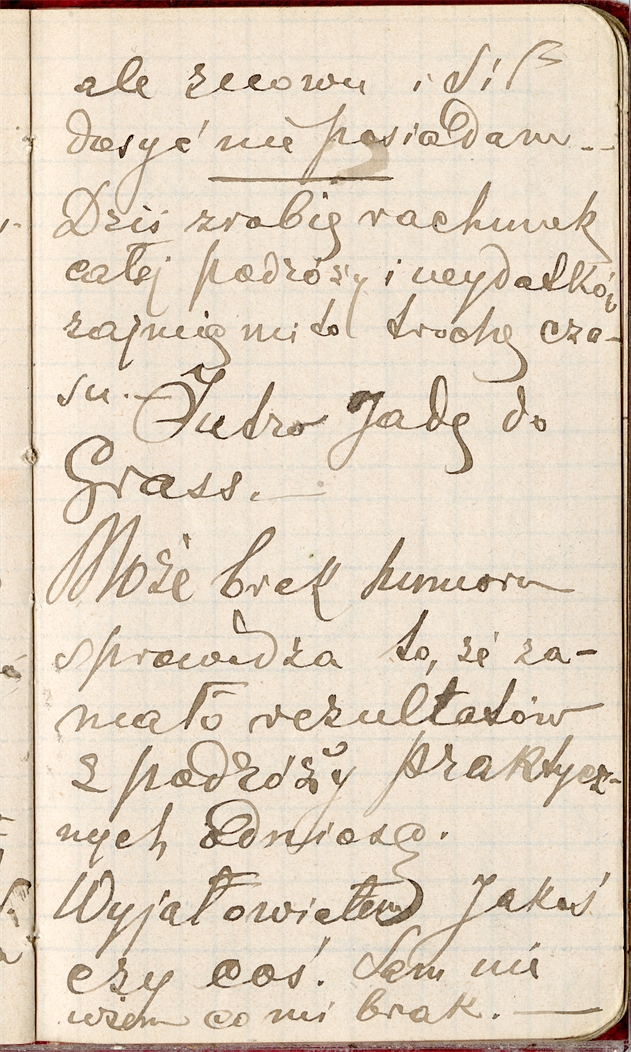 ale znowu i sił
dosyć nie posiadam --
Dziś zrobię rachunek
całej podróży i wydatków
zajmię mi to trochę cza-
su. — Jutro Jadę do
Grass. —
Może brak humoru
sprowadza to, że za-
mało rezultatów
z podróży praktycz-
nych odniosę.
Wyjałowiałem Jakoś
czy coś. Sam nie
wiem co mi brak. —